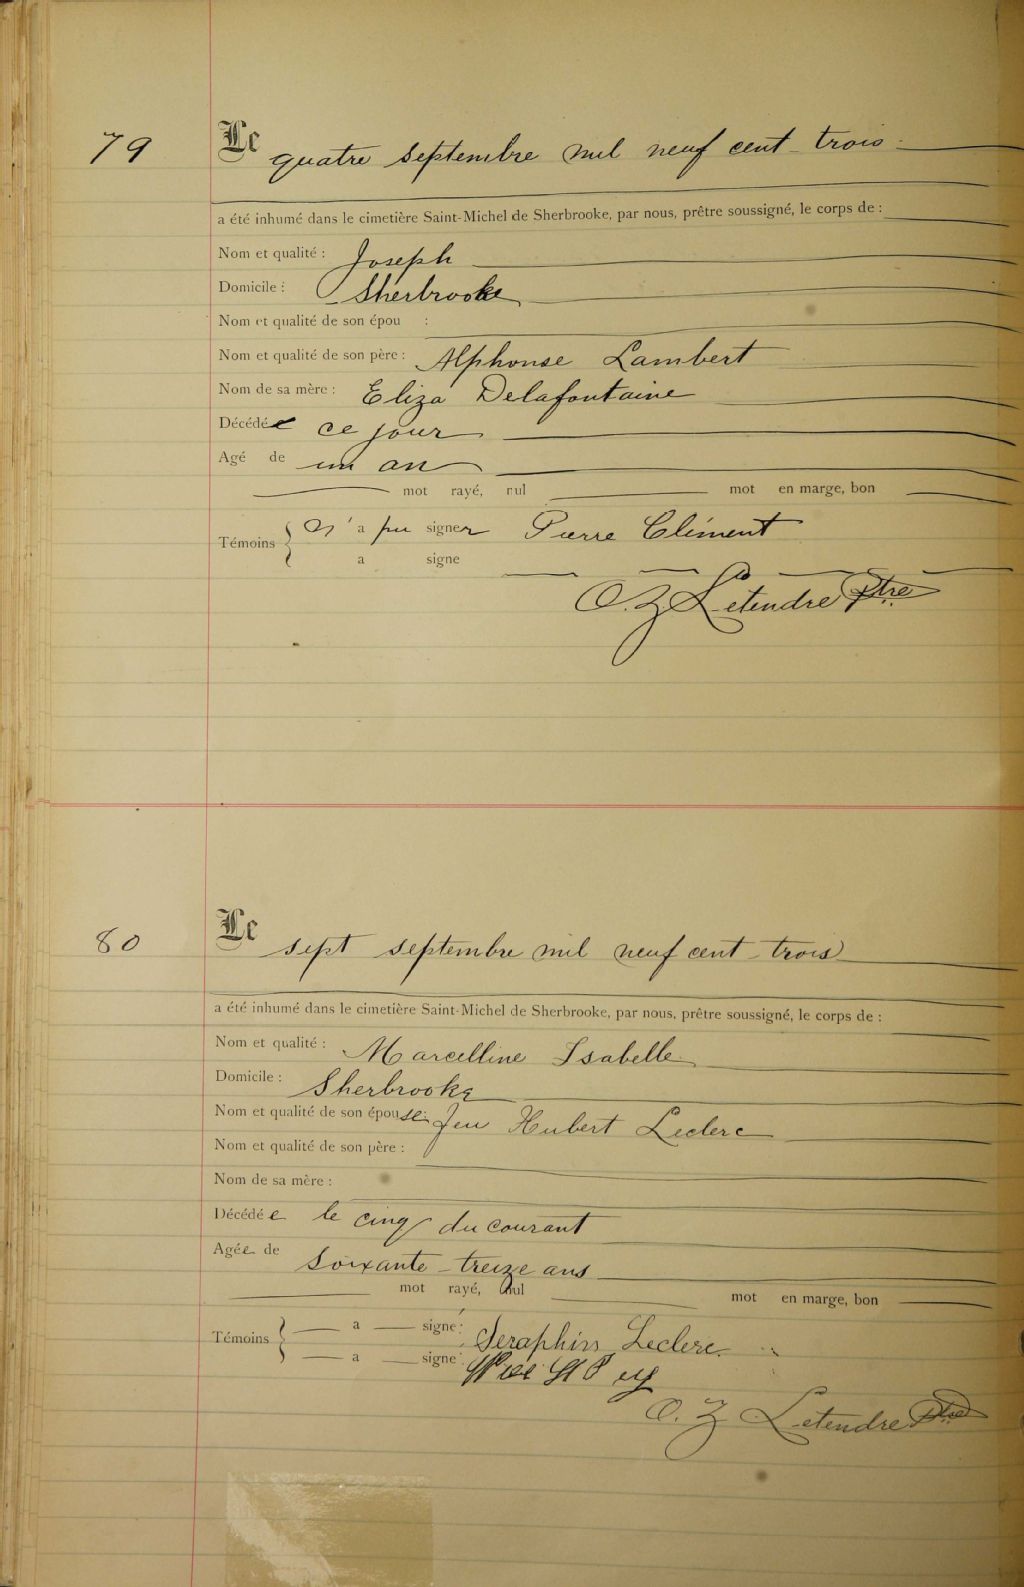 79
Le quatre septembre mil neuf cent trois
a été inhumé dans le cimetière Saint-Michel de Sherbrooke, par nous, prêtre soussigné, le corps de :
Nom et qualité : Joseph
Domicile : Sherbrooke
Nom et qualité de son épou :
Nom et qualité de son père : Alphonse Lambert
Nom de sa mère : Eliza Delafontaine
Décédé ce jour
Agé de un an
mot rayé, nul mot en marge, bon
Témoins { N'a pu signer Pierre Clément
a signe
O. Z Letendre Ptre
80
Le sept septembre mil neuf cent trois
a été inhumé dans le cimetière Saint-Michel de Sherbrooke, par nous, prêtre soussigné, le corps de :
Nom et qualité : Marcelline Isabelle
Domicile : Sherbrooke
Nom et qualité de son épouse : feu Hubert Leclerc
Nom et qualité de son père :
Nom de sa mère :
Décédée le cinq du courant
Agée de soixante-treize ans
mot rayé, nul mot en marge, bon
Témoins { a signé: Seraphin Leclerc
a signé:
O. Z Letendre Ptre